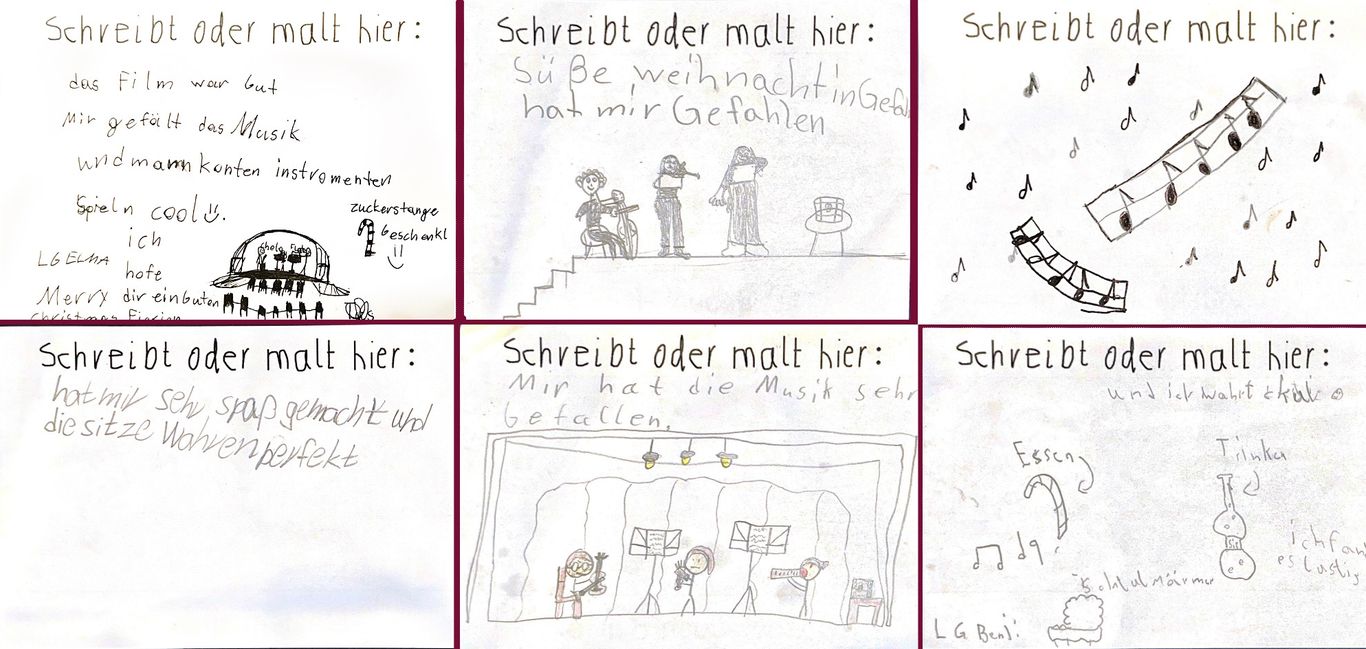 Schreibt oder malt hier:
das Film war Gut
Mir gefält das Musik
und mann konten instromenten
Spieln cool
ich
hofe
dir ein Guten
zuckerstange
Geschenkl
LG ELMA
Merry
christmas
Schreibt oder malt hier:
Süße weihnacht in
hat mir Gefahlen
Schreibt oder malt hier:
Schreibt oder malt hier:
hat mir sehr spaß gemacht und
die sitze Wahren perfekt
Schreibt oder malt hier:
Mir hat die Musik sehr
Gefallen.
Schreibt oder malt hier:
und ich
Essen
Trinken
es lustig
LG Benji